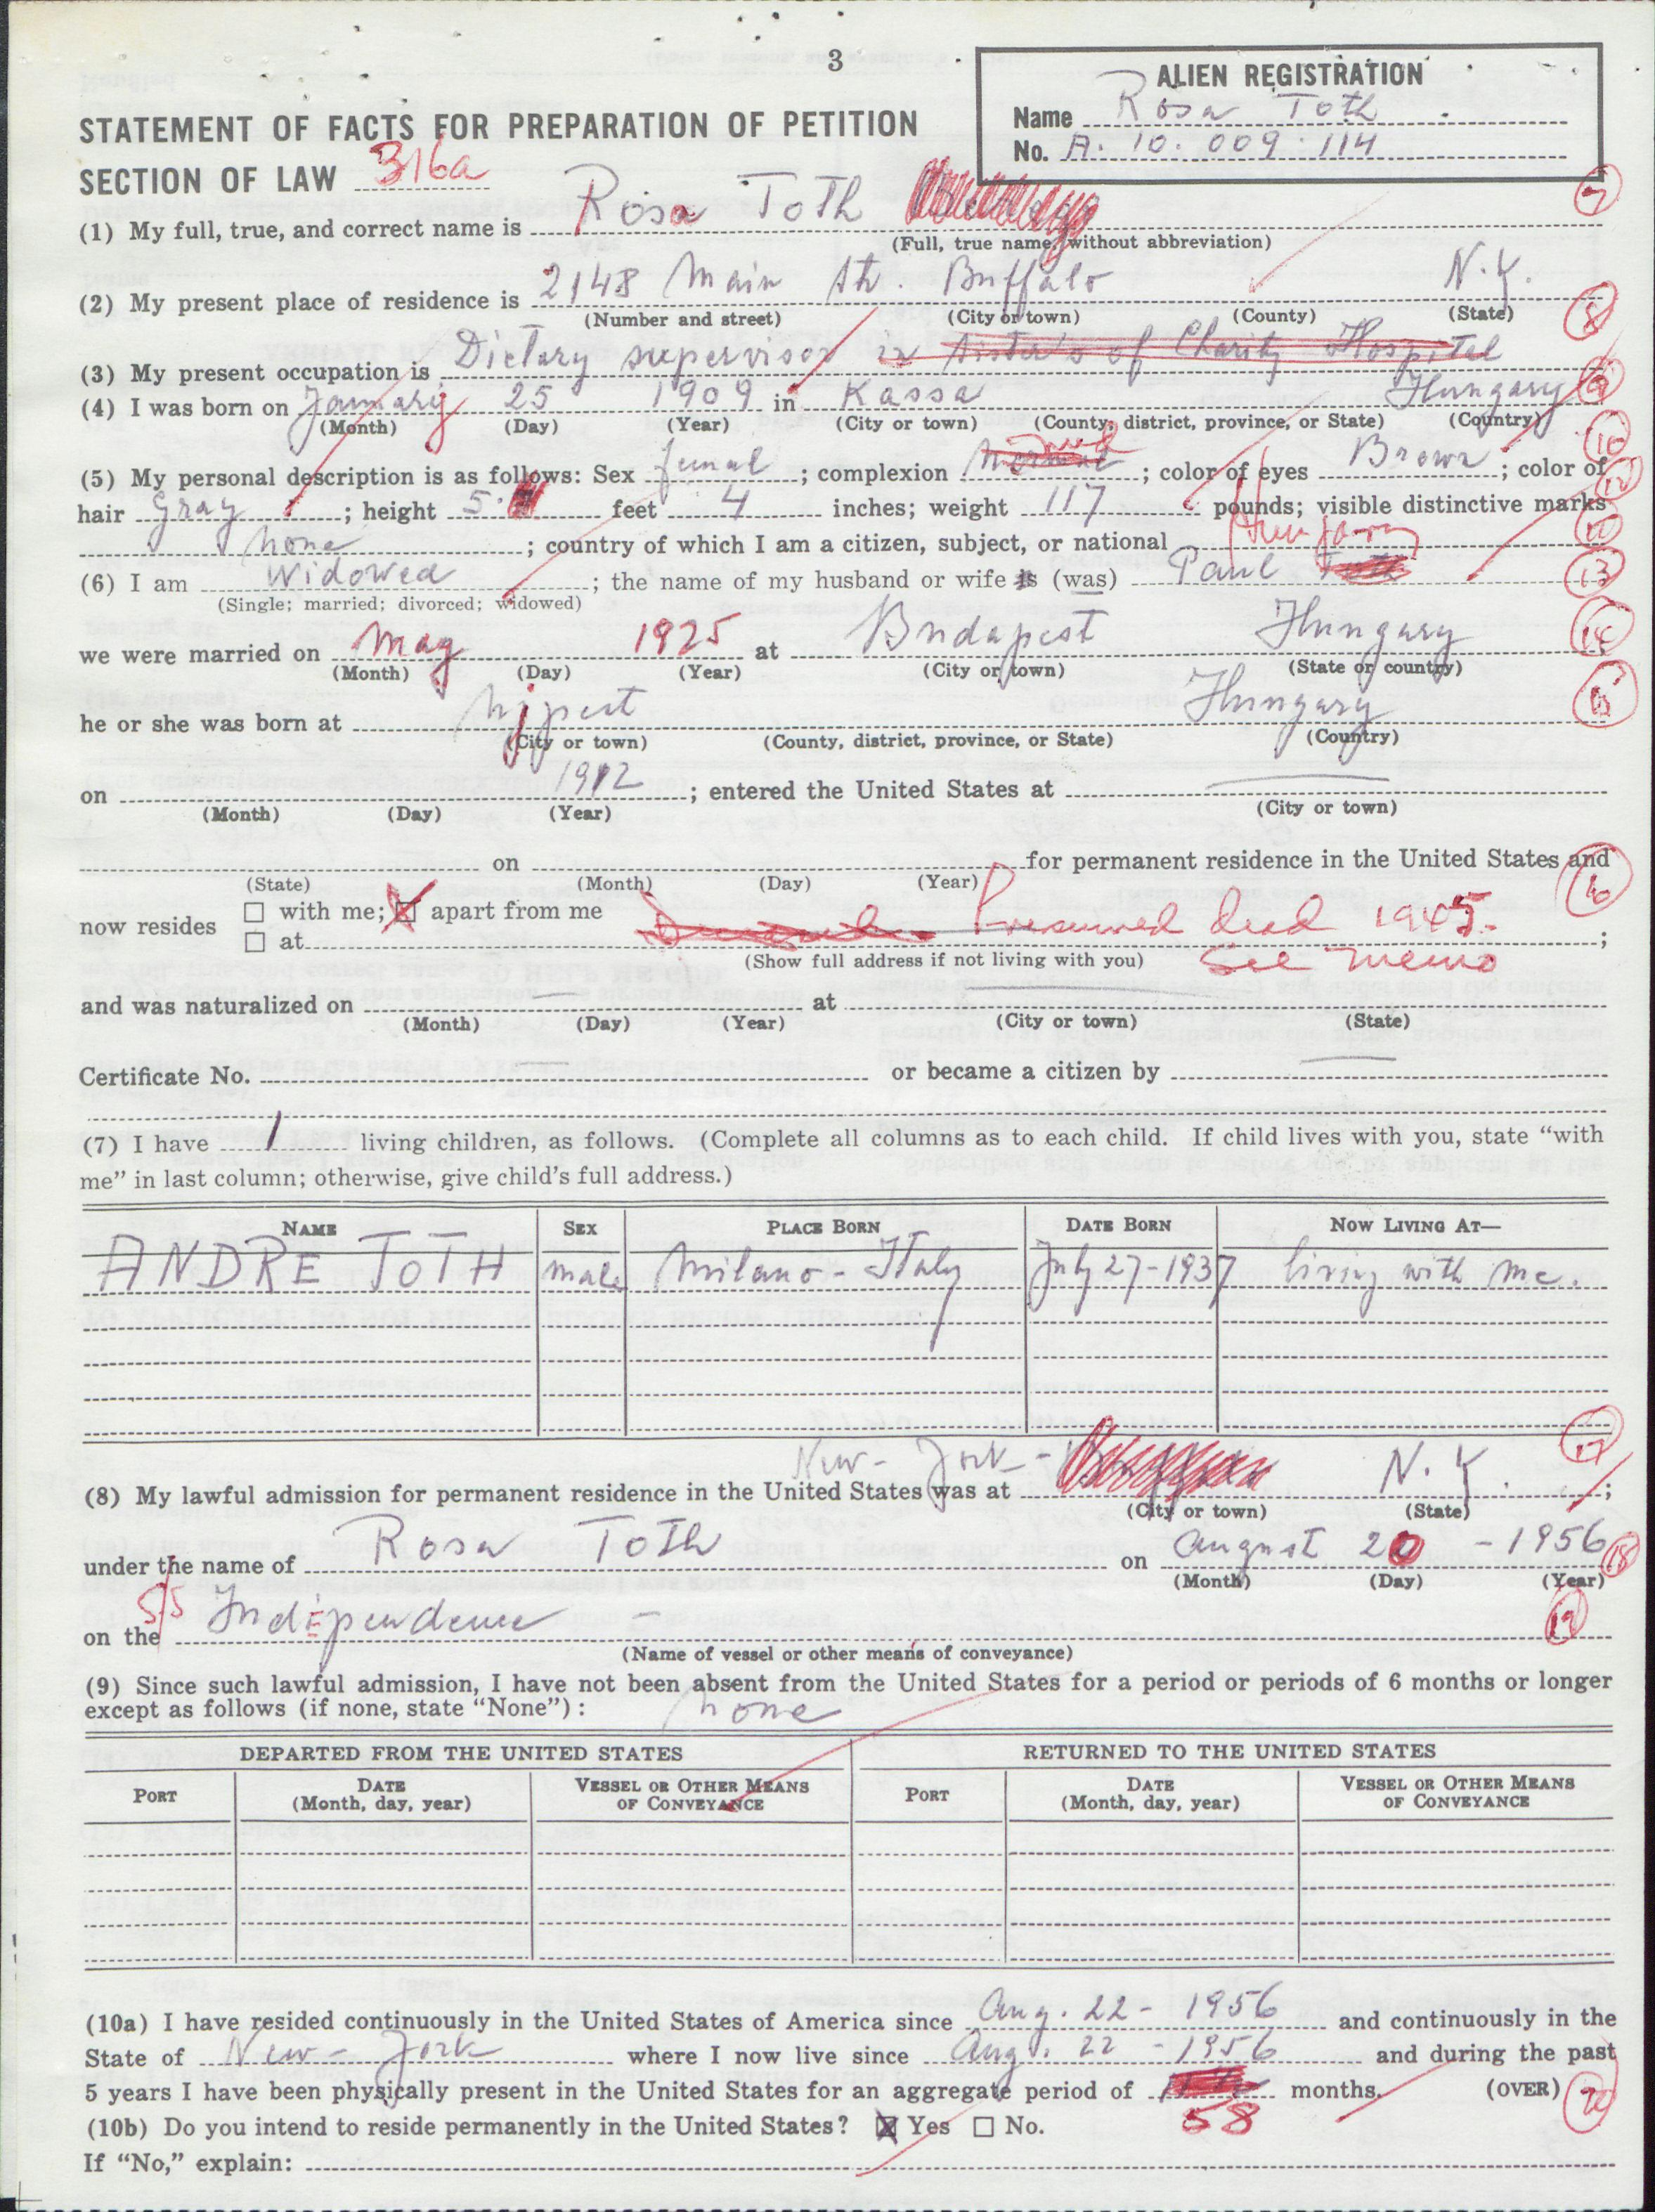 3
ALIEN REGISTRATION
Name Rosa Toth
No. A. 10. 009. 114
STATEMENT OF FACTS FOR PREPARATION OF PETITION
SECTION OF LAW 316a
7
(1) My full, true, and correct name is Rosa Toth
(Full, true name, without abbreviation)
(2) My present place of residence is 2148 Main Str. Buffalo N.Y.
(Number and street) (City or town) (County) (State)
8
(3) My present occupation is Dietary supervisor in Sister's of Charity Hospital
(4) I was born on January 25 1909 in Kassa Hungary 9
(Month) (Day) (Year) (City or town) (County, district, province, or State) (Country)
10
(5) My personal description is as follows: Sex femal ; complexion ; color of eyes Brown ; color of
hair Gray ; height 5 feet 4 inches; weight 117 pounds; visible distinctive marks
none ; country of which I am a citizen, subject, or national Hungary
(6) I am Widowed ; the name of my husband or wife is (was) Paul Toth 13
(Single; married; divorced; widowed)
we were married on May 1925 at Budapest Hungary 14
(Month) (Day) (Year) (City or town) (State or country)
he or she was born at Ujpest Hungary 15
(City or town) (County, district, province, or State) (Country)
on 1912 ; entered the United States at
(Month) (Day) (Year) (City or town)
on for permanent residence in the United States and
(State) (Month) (Day) (Year)
16
now resides with me; apart from me
at Presumed dead 1945. ;
(Show full address if not living with you) See memo
and was naturalized on at
(Month) (Day) (Year) (City or town) (State)
Certificate No. or became a citizen by
(7) I have 1 living children, as follows. (Complete all columns as to each child. If child lives with you, state “with
me” in last column; otherwise, give child’s full address.)
NAME SEX PLACE BORN DATE BORN NOW LIVING AT—
ANDRE TOTH male Milano - Italy July 27-1937 living with me.
17
(8) My lawful admission for permanent residence in the United States was at New-York - N.Y. ;
(City or town) (State)
under the name of Rosa Toth on August 20 - 1956 18
(Month) (Day) (Year)
on the S/S Independence - 19
(Name of vessel or other means of conveyance)
(9) Since such lawful admission, I have not been absent from the United States for a period or periods of 6 months or longer
except as follows (if none, state “None”): none
DEPARTED FROM THE UNITED STATES RETURNED TO THE UNITED STATES
PORT DATE (Month, day, year) VESSEL OR OTHER MEANS OF CONVEYANCE PORT DATE (Month, day, year) VESSEL OR OTHER MEANS OF CONVEYANCE
(10a) I have resided continuously in the United States of America since Aug. 22- 1956 and continuously in the
State of New-York where I now live since Aug. 22 - 1956 and during the past
5 years I have been physically present in the United States for an aggregate period of months. (OVER) 20
58
(10b) Do you intend to reside permanently in the United States? Yes No.
If “No,” explain: